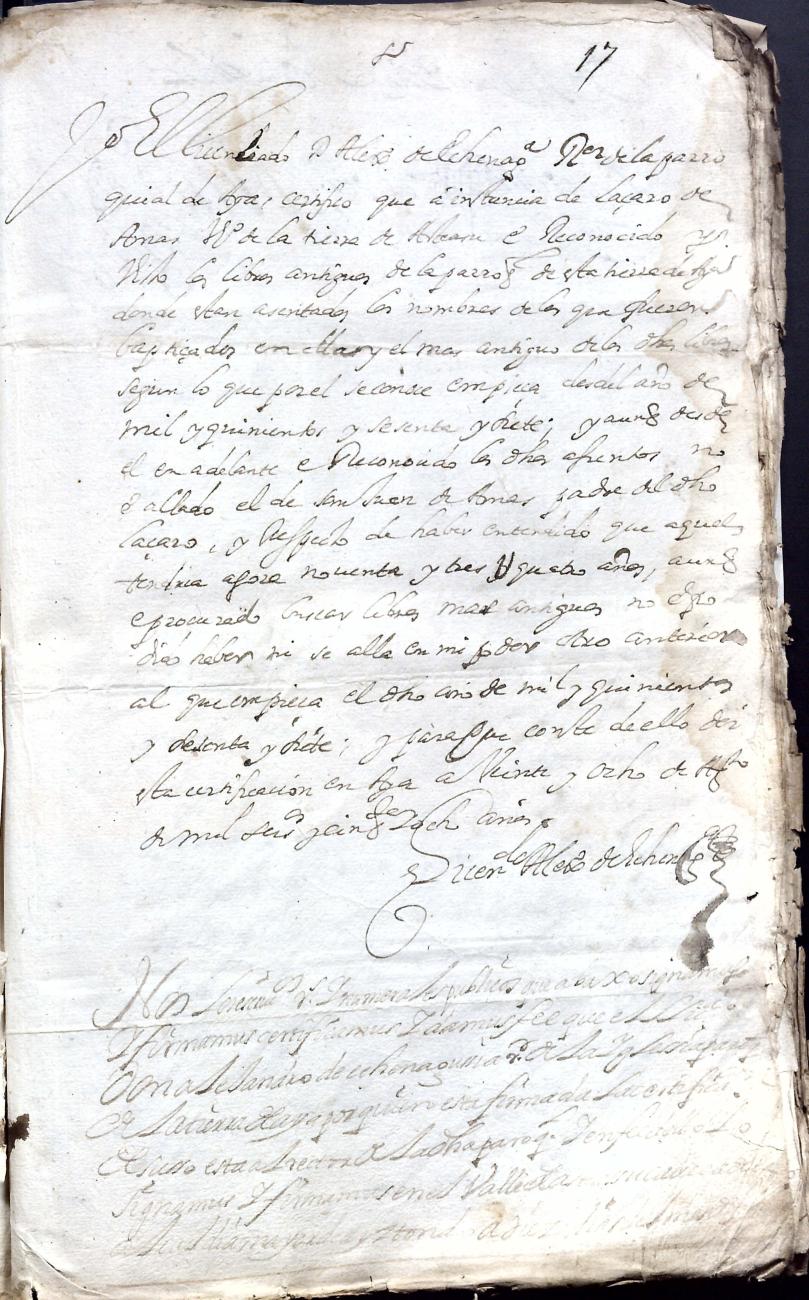 17
Yo El licenciado D. Alexo. de Echenagª Rer de la parro
quial de Aya, certifico que â instancia de Laçaro de
Arnas Vº de la tierra de e Reconocido y
Visto los libros antiguos de la parroq de esta tierra de Aya
donde estan asentados los nombres de los que fueron
baptiçados en ella y el mas antiguo de los dhos libros
segun lo que por el se conoce empieça desde el año de
mil y quinientos y sesenta y siete; y aunq desde
el en adelante e Reconocido los dhos asientos no
e allado el de San Juan de Arnas padre del dho
Laçaro, y Respecto de haber entendido que aquel
tendria agora noventa y tres o quatro años, aunq
e procurado buscar libros mas antiguos no e po
dido haber ni se alla en mi poder otro anterior
al que empieça el dho año de mil y quinientos
y sesenta y siete; y para que conste de ello di
esta certificacion en Aya a Veinte y ocho de Agto
de mil seis y cinqta y och años
Licendo Alexo de Echenagª
Nos numerales publicos que abaxo signamos
y firmamos certificamos y damos fee que el Licdo
Don Alesandro de echenagusia Rr de la Yglesia parroqᵉ
de la tierra de aya por quien esta firmada la certifon
de suso esta es Rector de la dha paroq. Y en fee de ello lo
signamos Y firmamos en el Valle